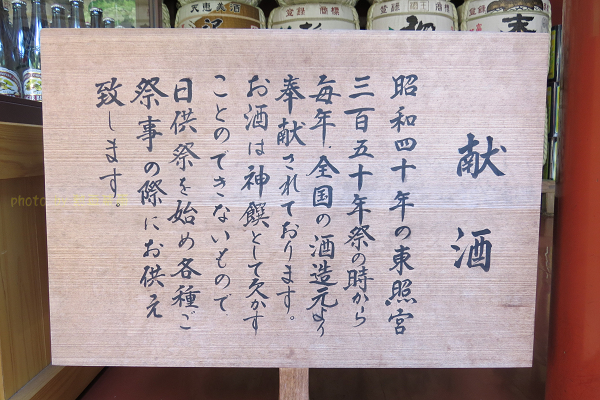 献酒
昭和四十年の東照宮
三百五十年祭の時から
毎年、全国の酒造元より
奉献されております。
お酒は神饌として欠かす
ことのできないもので
日供祭を始め各種ご
祭事の際にお供え
致します。
天恵美酒
登録 商標
登録 商標
登録